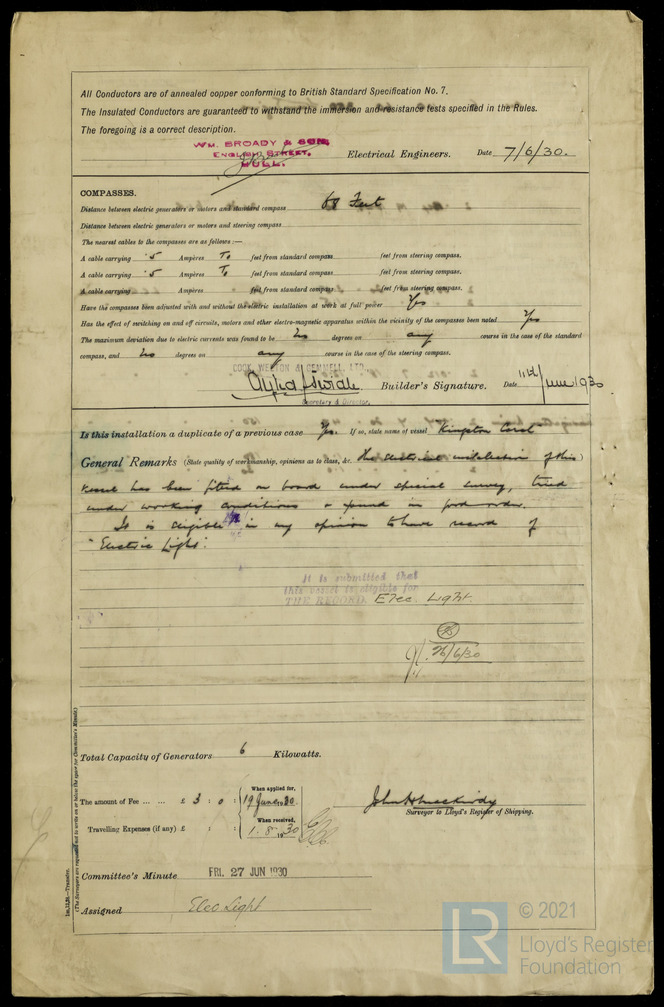 All Conductors are of annealed copper conforming to British Standard Specification No. 7.
The Insulated Conductors are guaranteed to withstand the immersion and resistance tests specified in the Rules.
The foregoing is a correct description.
WM. BROADY & SON,
ENGLISH STREET,
HULL.
Electrical Engineers. Date 7/6/30.
COMPASSES.
Distance between electric generators or motors and standard compass 68 Feet
Distance between electric generators or motors and steering compass
The nearest cables to the compasses are as follows :—
A cable carrying ·5 Ampères To feet from standard compass feet from steering compass.
A cable carrying ·5 Ampères To feet from standard compass feet from steering compass.
A cable carrying Ampères feet from standard compass feet from steering compass.
Have the compasses been adjusted with and without the electric installation at work at full power Yes
Has the effect of switching on and off circuits, motors and other electro-magnetic apparatus within the vicinity of the compasses been noted Yes
The maximum deviation due to electric currents was found to be no degrees on any course in the case of the standard
compass, and no degrees on any course in the case of the steering compass.
COOK, WELTON & GEMMELL, LTD.
Builder's Signature. Date 11th June 1930
Secretary & Director.
Is this installation a duplicate of a previous case Yes. If so, state name of vessel "Kingston Coral"
General Remarks (State quality of workmanship, opinions as to class, &c. The electrical installation of this
vessel has been fitted on board under special survey, tried
under working conditions & found in good order.
It is eligible in my opinion to have record of
"Electric Light".
It is submitted that
this vessel is eligible for
THE RECORD. Elec. Light.
26/6/30
Total Capacity of Generators 6 Kilowatts.
The amount of Fee ... ... £ 3 : 0 :
When applied for,
19 June 1930
When received,
1.8.1930
Travelling Expenses (if any) £ : :
Surveyor to Lloyd's Register of Shipping.
Committee's Minute FRI. 27 JUN 1930
Assigned Elec Light
1m,11,28.—Transfer.
(The Surveyors are requested not to write on or below the space for Committee's Minute.)
LR
© 2021
Lloyd's Register
Foundation